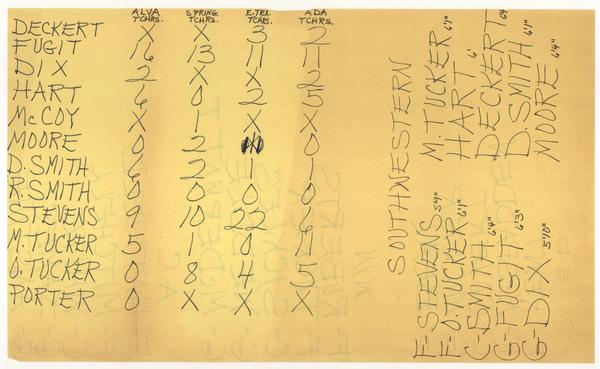 ALVA TCHRS. SPRING. TCHRS. E.TEX. TCHRS. ADA TCHRS.
DECKERT X X 3 2
FUGIT 16 13 11 11
DIX 2 X X 2
HART 6 0 2 5
McCOY X 1 X X
MOORE 0 2 0
D.SMITH 6 2 1 1
R.SMITH 0 0 0 0
STEVENS 9 10 22 6
M.TUCKER 5 1 0 11
O.TUCKER 0 8 4 5
PORTER 0 X X X
SOUTHWESTERN
F. STEVENS 5'9"
F. O.TUCKER 6'1"
C-SMITH 6'4"
G-FUGIT 6'3"
G-DIX 5'10"
M.TUCKER 6'1"
HART 6'
DECKERT
D.SMITH 6'1"
MOORE 6'4"